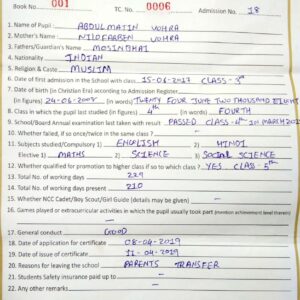 Book No. 001 TC. No. 0006 Admission No. 18
1. Name of Pupil: ABDULMATIN VOHRA
2. Mother's Name: NILOFARBEN VOHRA
3. Fathers/Guardian's Name MOSINBHAI
4. Nationality INDIAN
5. Religion & Caste MUSLIM
6. Date of first admission in the School with class 15-06-2017 CLASS - 3rd
7. Date of birth (in Christian Era) according to Admission Register
(in figures) 24-06-2008 (in words) TWENTY FOUR JUNE TWO THOUSAND EIGHT
8. Class in which the pupil last studied (in figures) 4th (in words) FOURTH
9. School/Board Annual examination last taken with result PASSED CLASS-4th IN MARCH 20
10. Whether failed, if so once/twice in the same class :
11. Subjects studied/Compulsory 1) ENGLISH 2) HINDI
Elective 1) MATHS 2) SCIENCE 3) Social SCIENCE
12. Whether qualified for promotion to higher class if so to which class? YES CLASS - 5th
13. Total No. of working days 229
14. Total No. of working days present 210
15. Whether NCC Cadet/Boy Scout/Girl Guide (details may be given) —
16. Games played or extracurricular activities in which the pupil usually took part (mention achievement level therein)
—
17. General conduct GOOD
18. Date of application for certificate 08-04-2019
19. Date of issue of certificate 11-04-2019
20. Reasons for leaving the school PARENTS TRANSFER
21. Students Safety insurance paid up to —
22. Any other remarks —